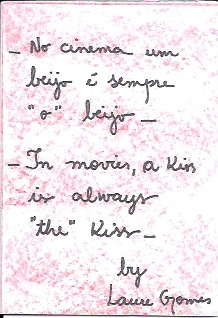 _ No cinema um
beijo é sempre
"o" beijo _
_ In movies, a kiss
is always
"the" kiss _
by
Laure Gomes